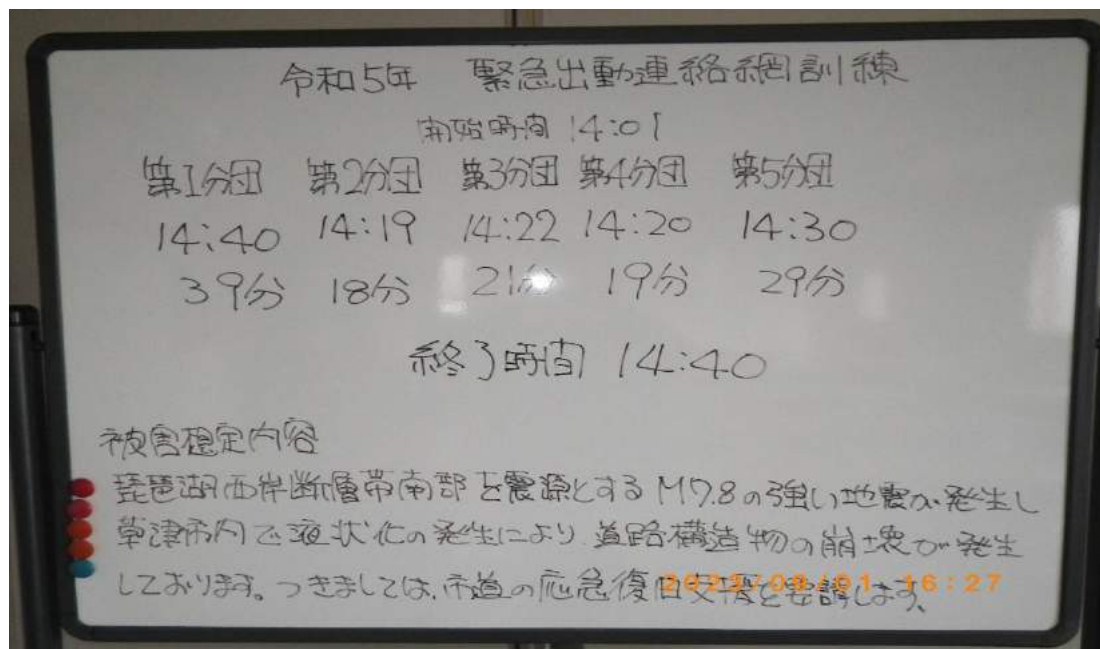 令和5年 緊急出動連絡網訓練
開始時間 14:01
第1分団 第2分団 第3分団 第4分団 第5分団
14:40 14:19 14:22 14:20 14:30
39分 18分 21分 19分 29分
終了時間 14:40
被害想定内容
琵琶湖西岸断層帯南部を震源とするM7.8の強い地震が発生し
草津市内で液状化の発生により、道路構造物の崩壊が発生
しております。つきましては、市道の応急復旧支援を要請します。
2023/09/01 16:27